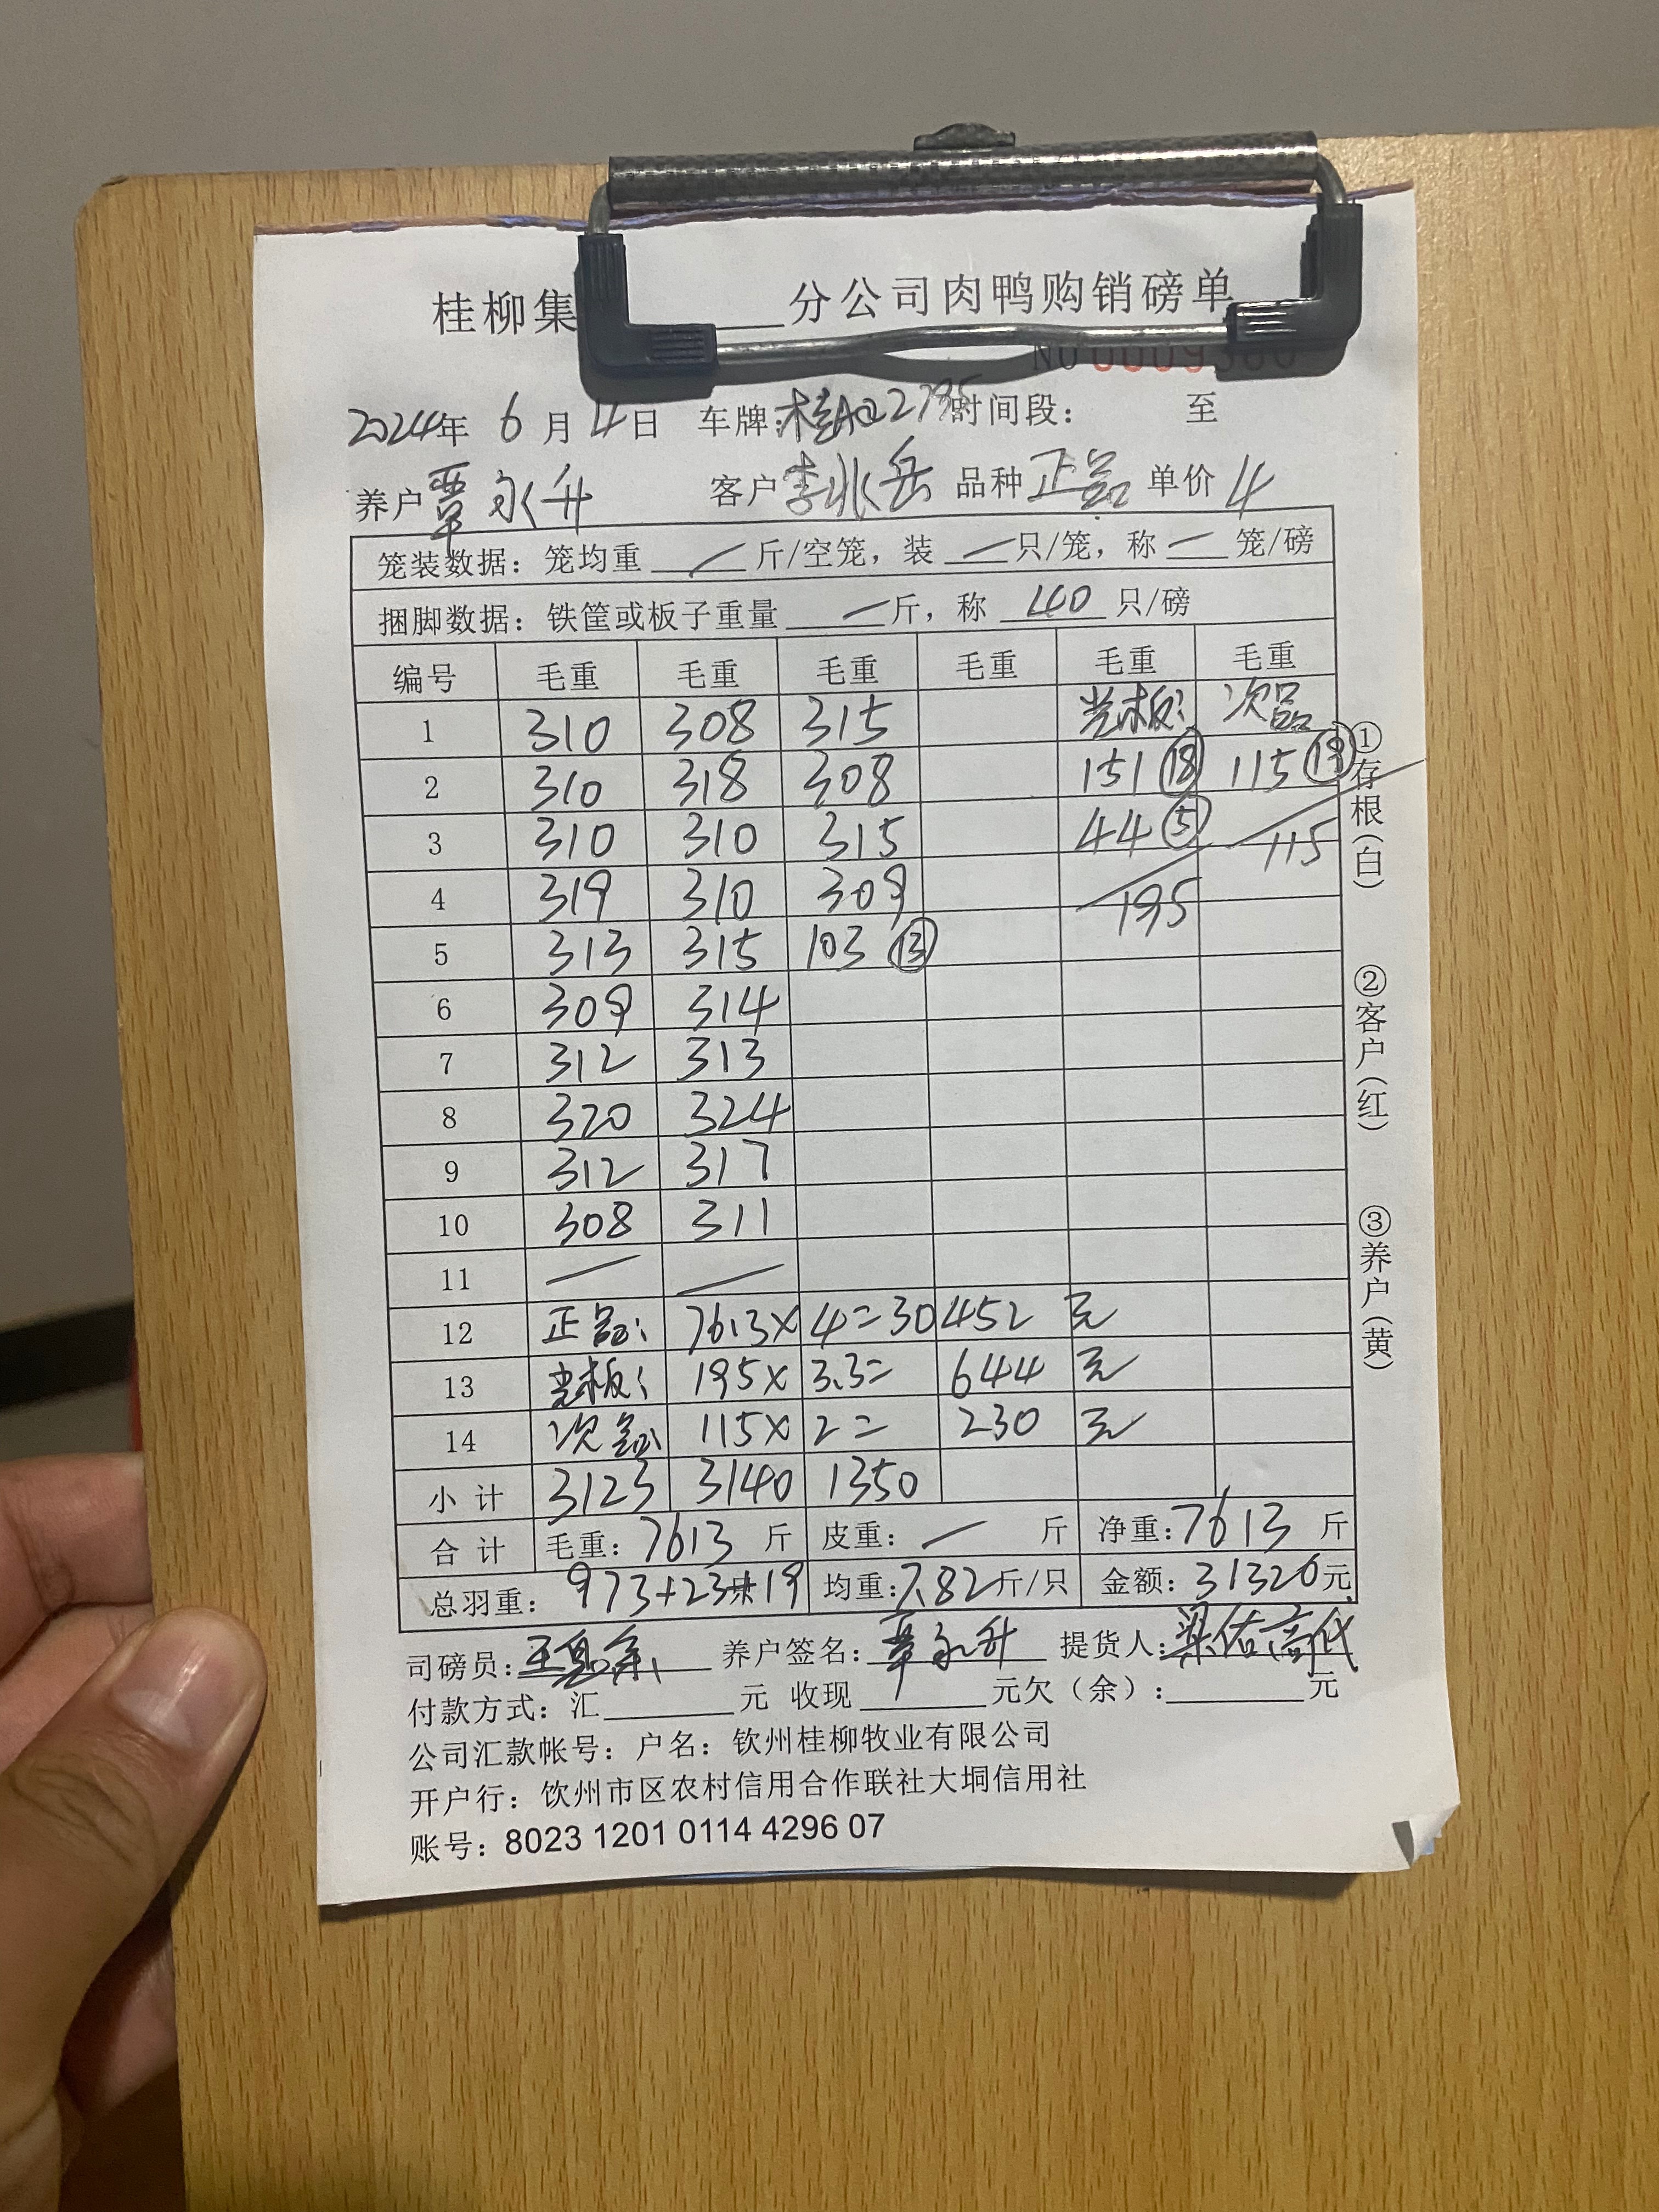 桂柳集 分公司肉鸭购销磅单
No 0009360
2024年 6月4日 车牌: 时间段： 至
养户 覃永升 客户 李兆岳 品种 正品 单价 4
笼装数据：笼均重 — 斤/空笼，装 — 只/笼，称 — 笼/磅
捆脚数据：铁筐或板子重量 — 斤，称 40 只/磅
编号 毛重 毛重 毛重 毛重 毛重 毛重
1 310 308 315 光板： 次品
2 310 318 308 151 ⑱ 115 ⑲
3 310 310 315 44 ⑤ 115
4 319 310 309 195
5 313 315 103 ⑬
6 309 314
7 312 313
8 320 324
9 312 317
10 308 311
11 — —
12 正品： 7613× 4= 30452 元
13 光板： 195× 3.3= 644 元
14 次品： 115× 2= 230 元
小计 3123 3140 1350
合计 毛重：7613 斤 皮重：— 斤 净重：7613 斤
总羽重：973+23+19 均重：7.82斤/只 金额：31326元
司磅员： 养户签名：覃永升 提货人：
付款方式：汇 元 收现 元欠（余）： 元
公司汇款帐号：户名：钦州桂柳牧业有限公司
开户行：钦州市区农村信用合作联社大垌信用社
账号：8023 1201 0114 4296 07
①存根（白）
②客户（红）
③养户（黄）